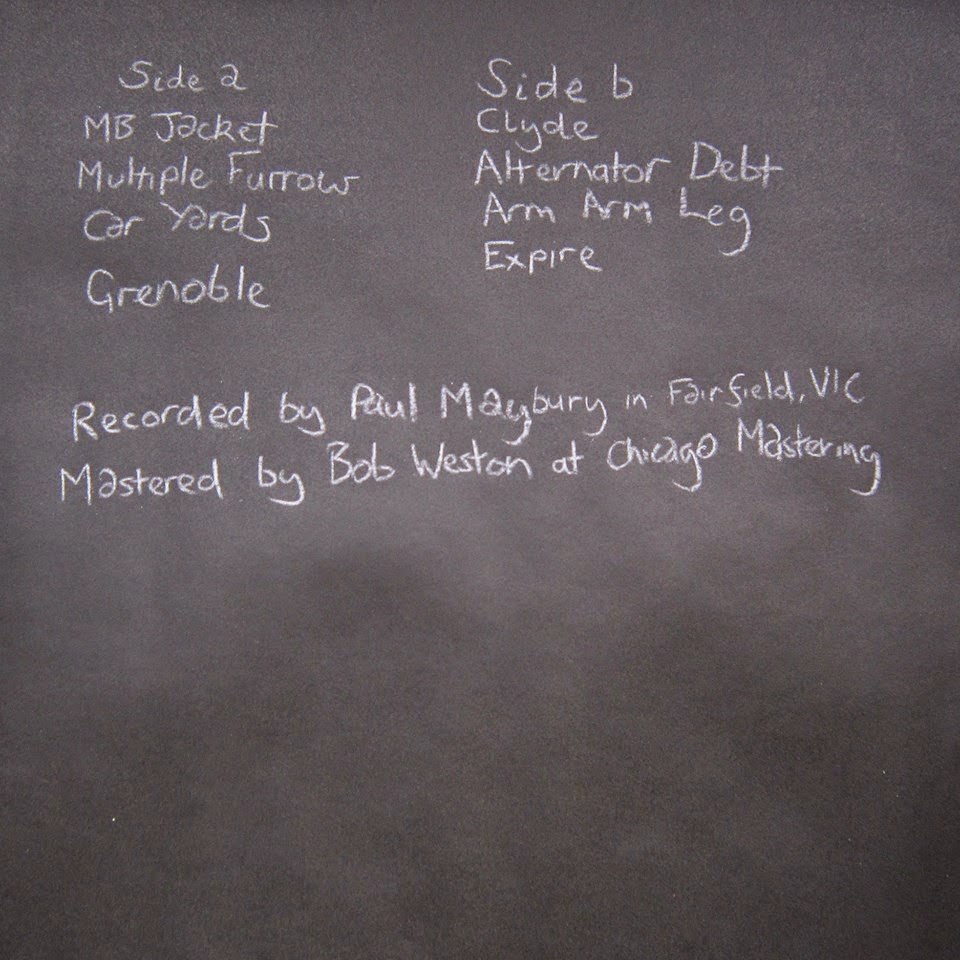 Side a
MB Jacket
Multiple Furrow
Car Yards
Grenoble
Side b
Clyde
Alternator Debt
Arm Arm Leg
Expire
Recorded by Paul Maybury in Fairfield, VIC
Mastered by Bob Weston at Chicago Mastering